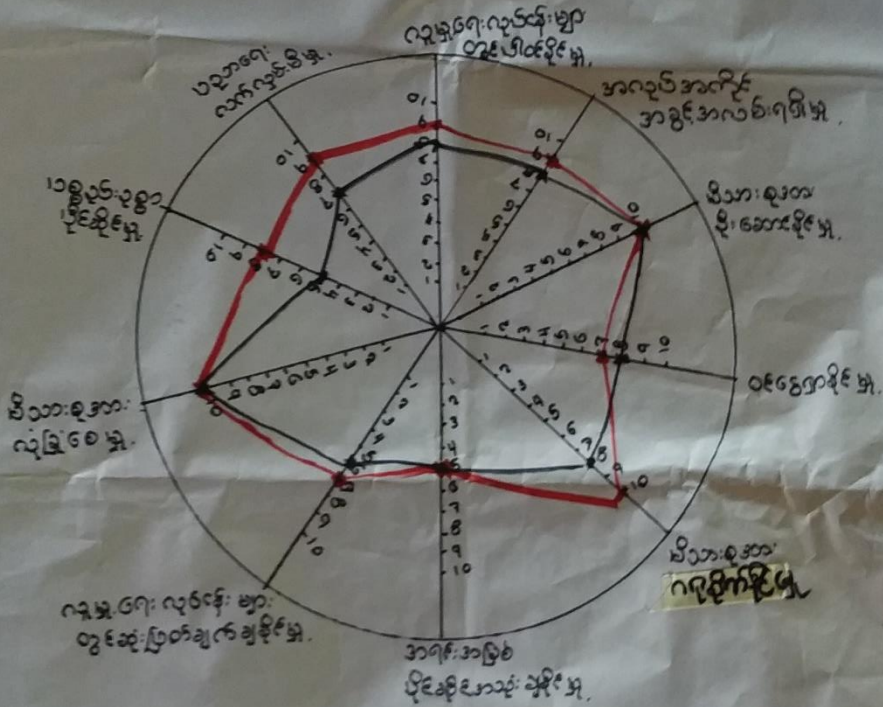 လူမှုရေးလုပ်ငန်းများ
တွင်ပါဝင်နိုင်မှု
အလုပ်အကိုင်
အခွင့်အလမ်းရရှိမှု
မိသားစုအား
ဦးဆောင်နိုင်မှု
ဝင်ငွေရှာနိုင်မှု
မိသားစုအား
ဂရုစိုက်နိုင်မှု
အရင်းအမြစ်
ပိုင်ဆိုင်အသုံးချနိုင်မှု
လူမှုရေး လုပ်ငန်း များ
တွင်ဆုံးဖြတ်ချက်ချနိုင်မှု
မိသားစုအား
လုံခြုံစေမှု
ပစ္စည်းဥစ္စာ
ပိုင်ဆိုင်မှု
ပညာရေး
လက်လှမ်းမီမှု
1
2
3
4
5
6
7
8
9
10